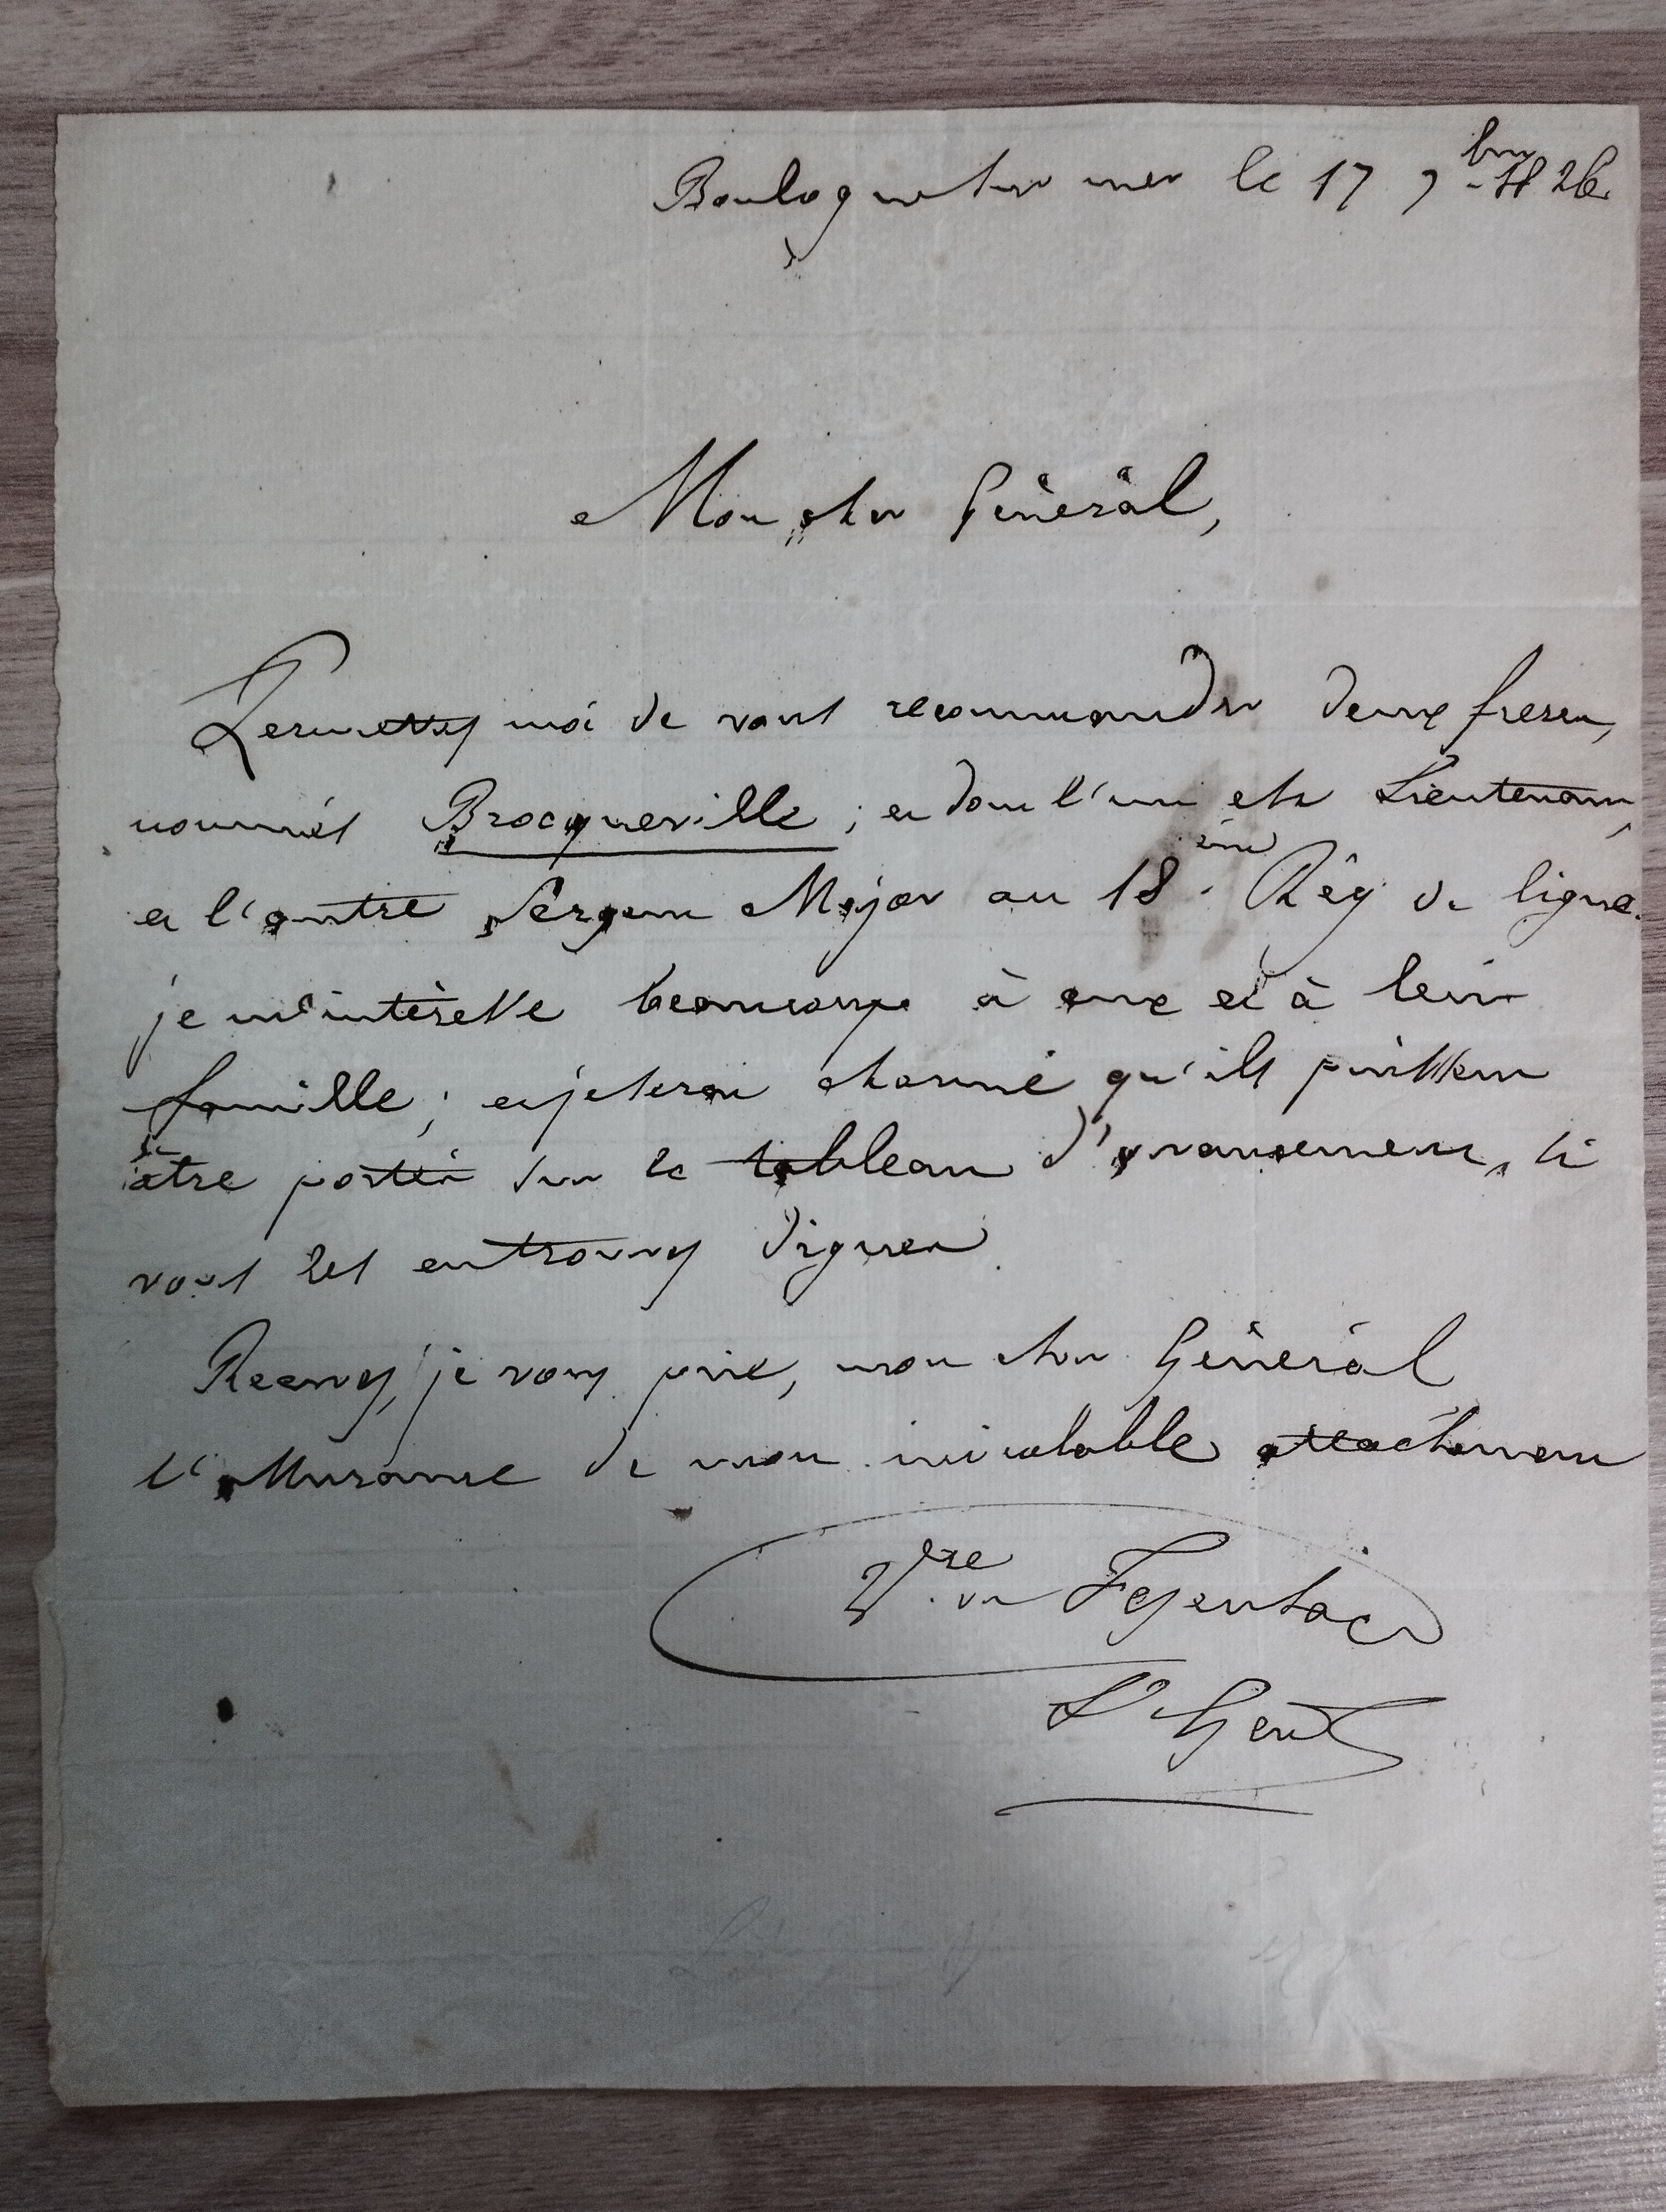 Boulogne sur mer le 17 7bre 1826.
Mon cher Général,
Permettez moi de vous recommander deux freres,
nommés Brocqueville ; et dont l'un est Lieutenant,
et l'autre Sergent Major au 18.ème Rég de ligne.
je m'intéresse beaucoup à eux et à leur
famille ; et je serai charmé qu'ils puissent
être portés sur le tableau d'avancement, si
vous les en trouvez dignes.
Recevez, je vous prie, mon cher Général
l'assurance de mon inviolable attachement
V.te de
Lt Genl